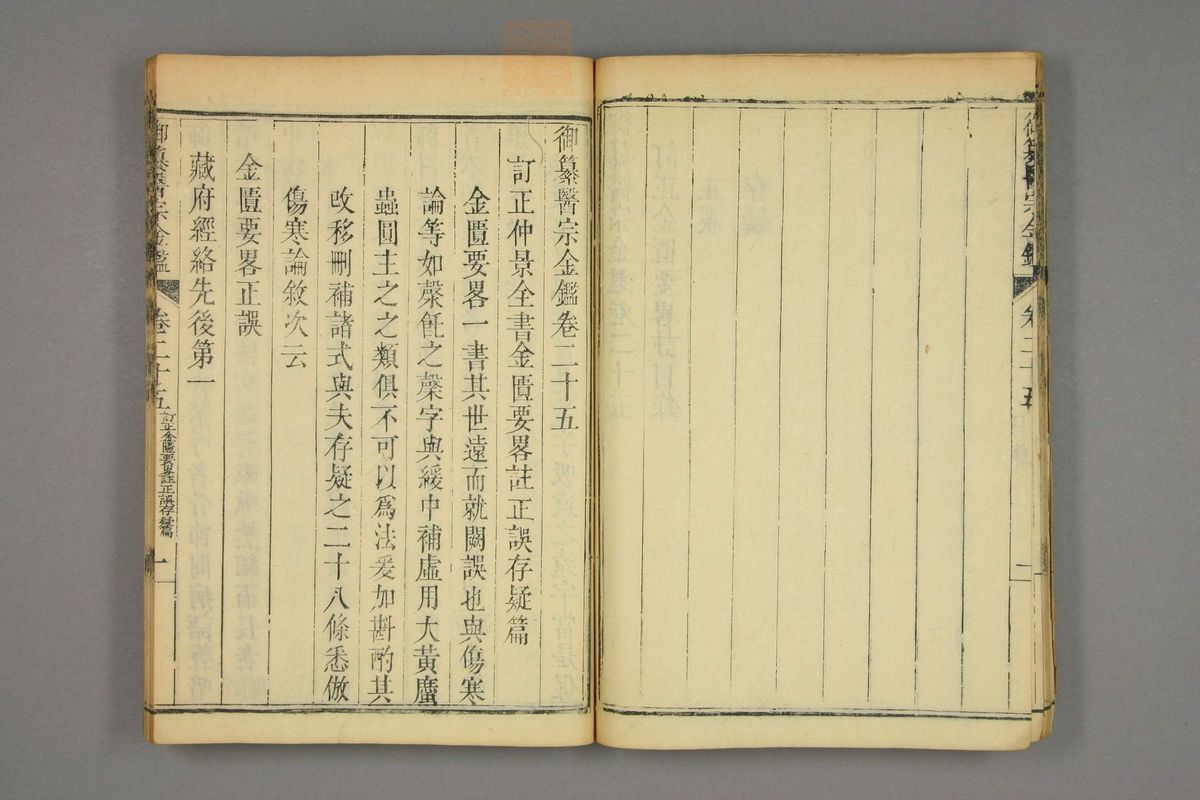 御纂醫宗金鑑
卷二十五
一
御纂醫宗金鑑卷二十五
訂正仲景全書金匱要畧註正誤存疑篇
金匱要畧一書其世遠而就闕誤也與傷寒
論等如槃飥之槃字與緩中補虛用大黃䗪
蟲圓主之之類俱不可以爲法爰加斟酌其
改移刪補諸式與夫存疑之二十八條悉倣
傷寒論敘次云
金匱要畧正誤
藏府經絡先後第一
御纂醫宗金鑑
卷二十五
訂正金匱要畧註正誤存疑篇
一